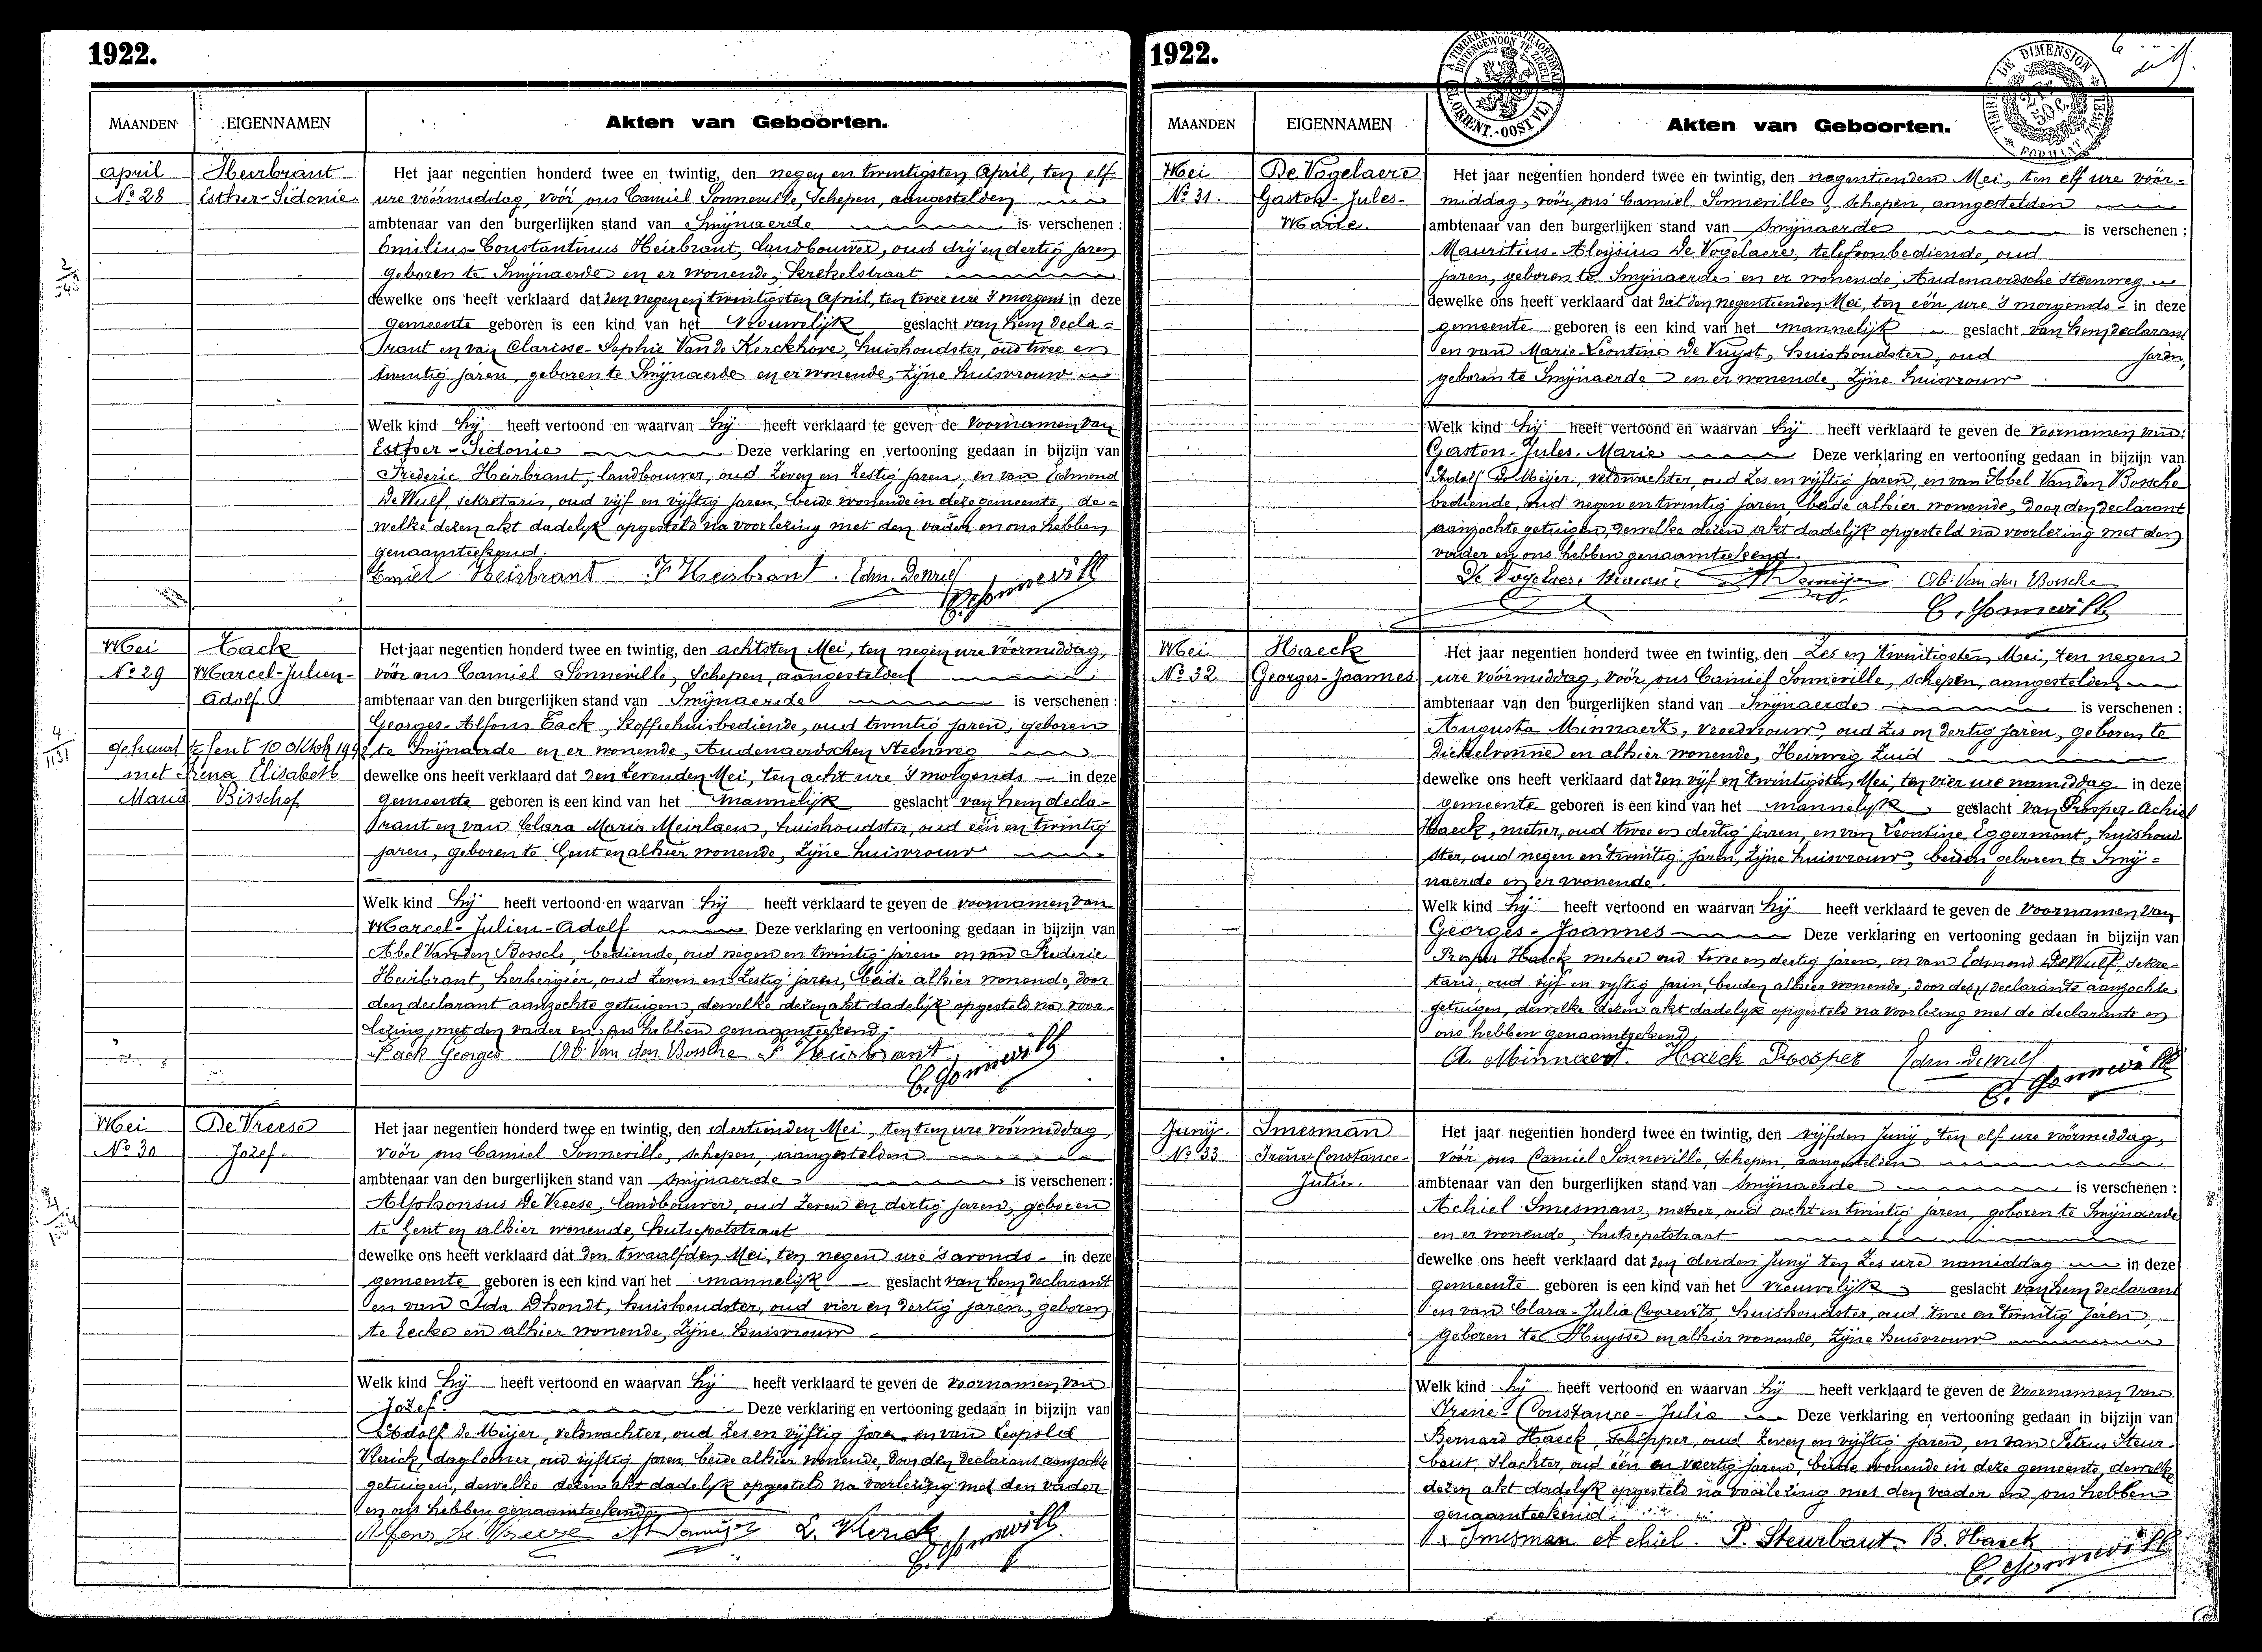 1922.
MAANDEN EIGENNAMEN Akten van Geboorten.
April
No 28
Heirbrant
Esther-Sidonie
Het jaar negentien honderd twee en twintig, den negen en twintigsten April, ten elf
ure vóórmiddag, vóór ons Camiel Sonneville, Schepen, aangestelden
ambtenaar van den burgerlijken stand van Smijnaerde is verschenen :
Emilius-Constantinus Heirbrant, landbouwer, oud drij en dertig jaren
geboren te Smijnaerde en er wonende, Krekelstraat
dewelke ons heeft verklaard dat den negen en twintigsten April, ten twee ure 's morgens in deze
gemeente geboren is een kind van het vrouwelijk geslacht van hem decla-
rant en van Clarisse-Sophie Van de Kerckhove, huishoudster, oud twee en
twintig jaren, geboren te Smijnaerde en er wonende, zijne huisvrouw
Welk kind hij heeft vertoond en waarvan hij heeft verklaard te geven de voornamen van
Esther-Sidonie Deze verklaring en vertooning gedaan in bijzijn van
Frederic Heirbrant, landbouwer, oud zeven en zestig jaren, en van Edmond
De Wulf, sekretaris, oud vijf en vijftig jaren, beide wonende in deze gemeente, de-
welke dezen akt dadelijk opgesteld na voorlezing met den vader en ons hebben
genaamteekend.
Emiel Heirbrant F. Heirbrant. Edm. Dewulf
C. Sonneville
Mei
No 29
Tack
Marcel-Julien-
Adolf
gehuwd te Gent 10 Oktob 1942
met Irena Elisabeth
Maria Bisschop
Het jaar negentien honderd twee en twintig, den achtsten Mei, ten negen ure vóórmiddag,
vóór ons Camiel Sonneville, Schepen, aangestelden
ambtenaar van den burgerlijken stand van Smijnaerde is verschenen :
Georges-Alfons Tack, koffiehuisbediende, oud twintig jaren, geboren
te Smijnaarde en er wonende, Audenaerdschen Steenweg
dewelke ons heeft verklaard dat den zevenden Mei, ten acht ure 's morgends in deze
gemeente geboren is een kind van het mannelijk geslacht van hem decla-
rant en van Clara Maria Meirlaen, huishoudster, oud één en twintig
jaren, geboren te Gent en alhier wonende, zijne huisvrouw
Welk kind hij heeft vertoond en waarvan hij heeft verklaard te geven de voornamen van
Marcel-Julien-Adolf Deze verklaring en vertooning gedaan in bijzijn van
Abel Van den Bossche, bediende, oud negen en twintig jaren en van Frederic
Heirbrant, herbergier, oud zeven en zestig jaren, beide alhier wonende, door
den declarant aanzochte getuigen, dewelke dezen akt dadelijk opgesteld na voor-
lezing, met den vader en ons hebben genaamteekend.
Tack Georges Ab. Van den Bossche F. Heirbrant.
C. Sonneville
Mei
No 30
De Vreese
Jozef.
Het jaar negentien honderd twee en twintig, den dertienden Mei, ten tien ure vóórmiddag,
vóór ons Camiel Sonneville, schepen, aangestelden
ambtenaar van den burgerlijken stand van Smijnaerde is verschenen :
Alphonsus De Vreese, landbouwer, oud zeven en dertig jaren, geboren
te Gent en alhier wonende, Hutsepotstraat
dewelke ons heeft verklaard dat den twaalfden Mei, ten negen ure 's avonds in deze
gemeente geboren is een kind van het mannelijk geslacht van hem declarant
en van Ida Dhondt, huishoudster, oud vier en dertig jaren, geboren
te Eecke en alhier wonende, zijne huisvrouw
Welk kind hij heeft vertoond en waarvan hij heeft verklaard te geven de voornamen van
Jozef. Deze verklaring en vertooning gedaan in bijzijn van
Adolf De Meijer, veldwachter, oud zes en vijftig jaren en van Leopold
Klerick, daglooner, oud vijftig jaren, beide alhier wonende, door den declarant aanzochte
getuigen, dewelke dezen akt dadelijk opgesteld na voorlezing met den vader
en ons hebben genaamteekend.
Alfons De Vreese L. Klerick
C. Sonneville
1922.
MAANDEN EIGENNAMEN Akten van Geboorten.
Mei
No 31.
De Vogelaere
Gaston-Jules-
Marie.
Het jaar negentien honderd twee en twintig, den negentienden Mei, ten elf ure vóór-
middag, vóór ons Camiel Sonneville, schepen, aangestelden
ambtenaar van den burgerlijken stand van Smijnaerde is verschenen :
Mauritius-Aloïsius De Vogelaere, telefoonbediende, oud
jaren, geboren te Smijnaerde en er wonende, Audenaerdsche Steenweg
dewelke ons heeft verklaard dat dat den negentienden Mei, ten één ure 's morgends in deze
gemeente geboren is een kind van het mannelijk geslacht van hem declarant
en van Marie-Leontine De Vuyst, huishoudster, oud jaren,
geboren te Smijnaerde en er wonende, zijne huisvrouw
Welk kind hij heeft vertoond en waarvan hij heeft verklaard te geven de voornamen van:
Gaston-Jules-Marie Deze verklaring en vertooning gedaan in bijzijn van
Adolf De Meijer, veldwachter, oud zes en vijftig jaren, en van Abel Van den Bossche
bediende, oud negen en twintig jaren, beide alhier wonende, door den declarant
aanzochte getuigen, dewelke dezen akt dadelijk opgesteld na voorlezing met den
vader en ons hebben genaamteekend
De Vogelaere Ab. Van den Bossche
C. Sonneville
Mei
No 32
Haeck
Georges-Joannes
Het jaar negentien honderd twee en twintig, den zes en twintigsten Mei, ten negen
ure vóórmiddag, vóór ons Camiel Sonneville, schepen, aangestelden
ambtenaar van den burgerlijken stand van Smijnaerde is verschenen :
Augusta Minnaert, vroedvrouw, oud zes en dertig jaren, geboren te
Dickelvenne en alhier wonende, Heirweg Zuid
dewelke ons heeft verklaard dat den vijf en twintigsten Mei, ten vier ure namiddag in deze
gemeente geboren is een kind van het mannelijk geslacht van Prosper-Achiel
Haeck, metser, oud twee en dertig jaren, en van Leontine Eggermont, huishoud-
ster, oud negen en twintig jaren, zijne huisvrouw, beiden geboren te Smij-
naerde en er wonende.
Welk kind hij heeft vertoond en waarvan hij heeft verklaard te geven de voornamen van
Georges-Joannes Deze verklaring en vertooning gedaan in bijzijn van
Prosper Haeck metser oud twee en dertig jaren, en van Edmond De Wulf, sekre-
taris, oud vijf en vijftig jaren, beiden alhier wonende, door deze declarante aanzochte
getuigen, dewelke dezen akt dadelijk opgesteld na voorlezing met de declarante en
ons hebben genaamteekend.
A. Minnaert. Haeck Prosper Edm. Dewulf
C. Sonneville
Junij
No 33
Smesman
Irène Constance-
Julia.
Het jaar negentien honderd twee en twintig, den vijfden Junij, ten elf ure vóórmiddag,
vóór ons Camiel Sonneville, Schepen, aangestelden
ambtenaar van den burgerlijken stand van Smijnaerde is verschenen :
Achiel Smesman, metser, oud acht en twintig jaren, geboren te Smijnaerde
en er wonende, Hutsepotstraat
dewelke ons heeft verklaard dat den derden Junij ten zes ure namiddag in deze
gemeente geboren is een kind van het vrouwelijk geslacht van hem declarant
en van Clara-Julia Coorevits, huishoudster, oud twee en twintig jaren,
geboren te Huysse en alhier wonende, zijne huisvrouw
Welk kind hij heeft vertoond en waarvan hij heeft verklaard te geven de voornamen van
Irène-Constance-Julia Deze verklaring en vertooning gedaan in bijzijn van
Bernard Haeck, schipper, oud zeven en vijftig jaren, en van Petrus Steur-
baut, slachter, oud één en veertig jaren, beide wonende in deze gemeente, dewelke
dezen akt dadelijk opgesteld na voorlezing met den vader en ons hebben
genaamteekend.
Smesman Achiel. P. Steurbaut. B. Haeck
C. Sonneville